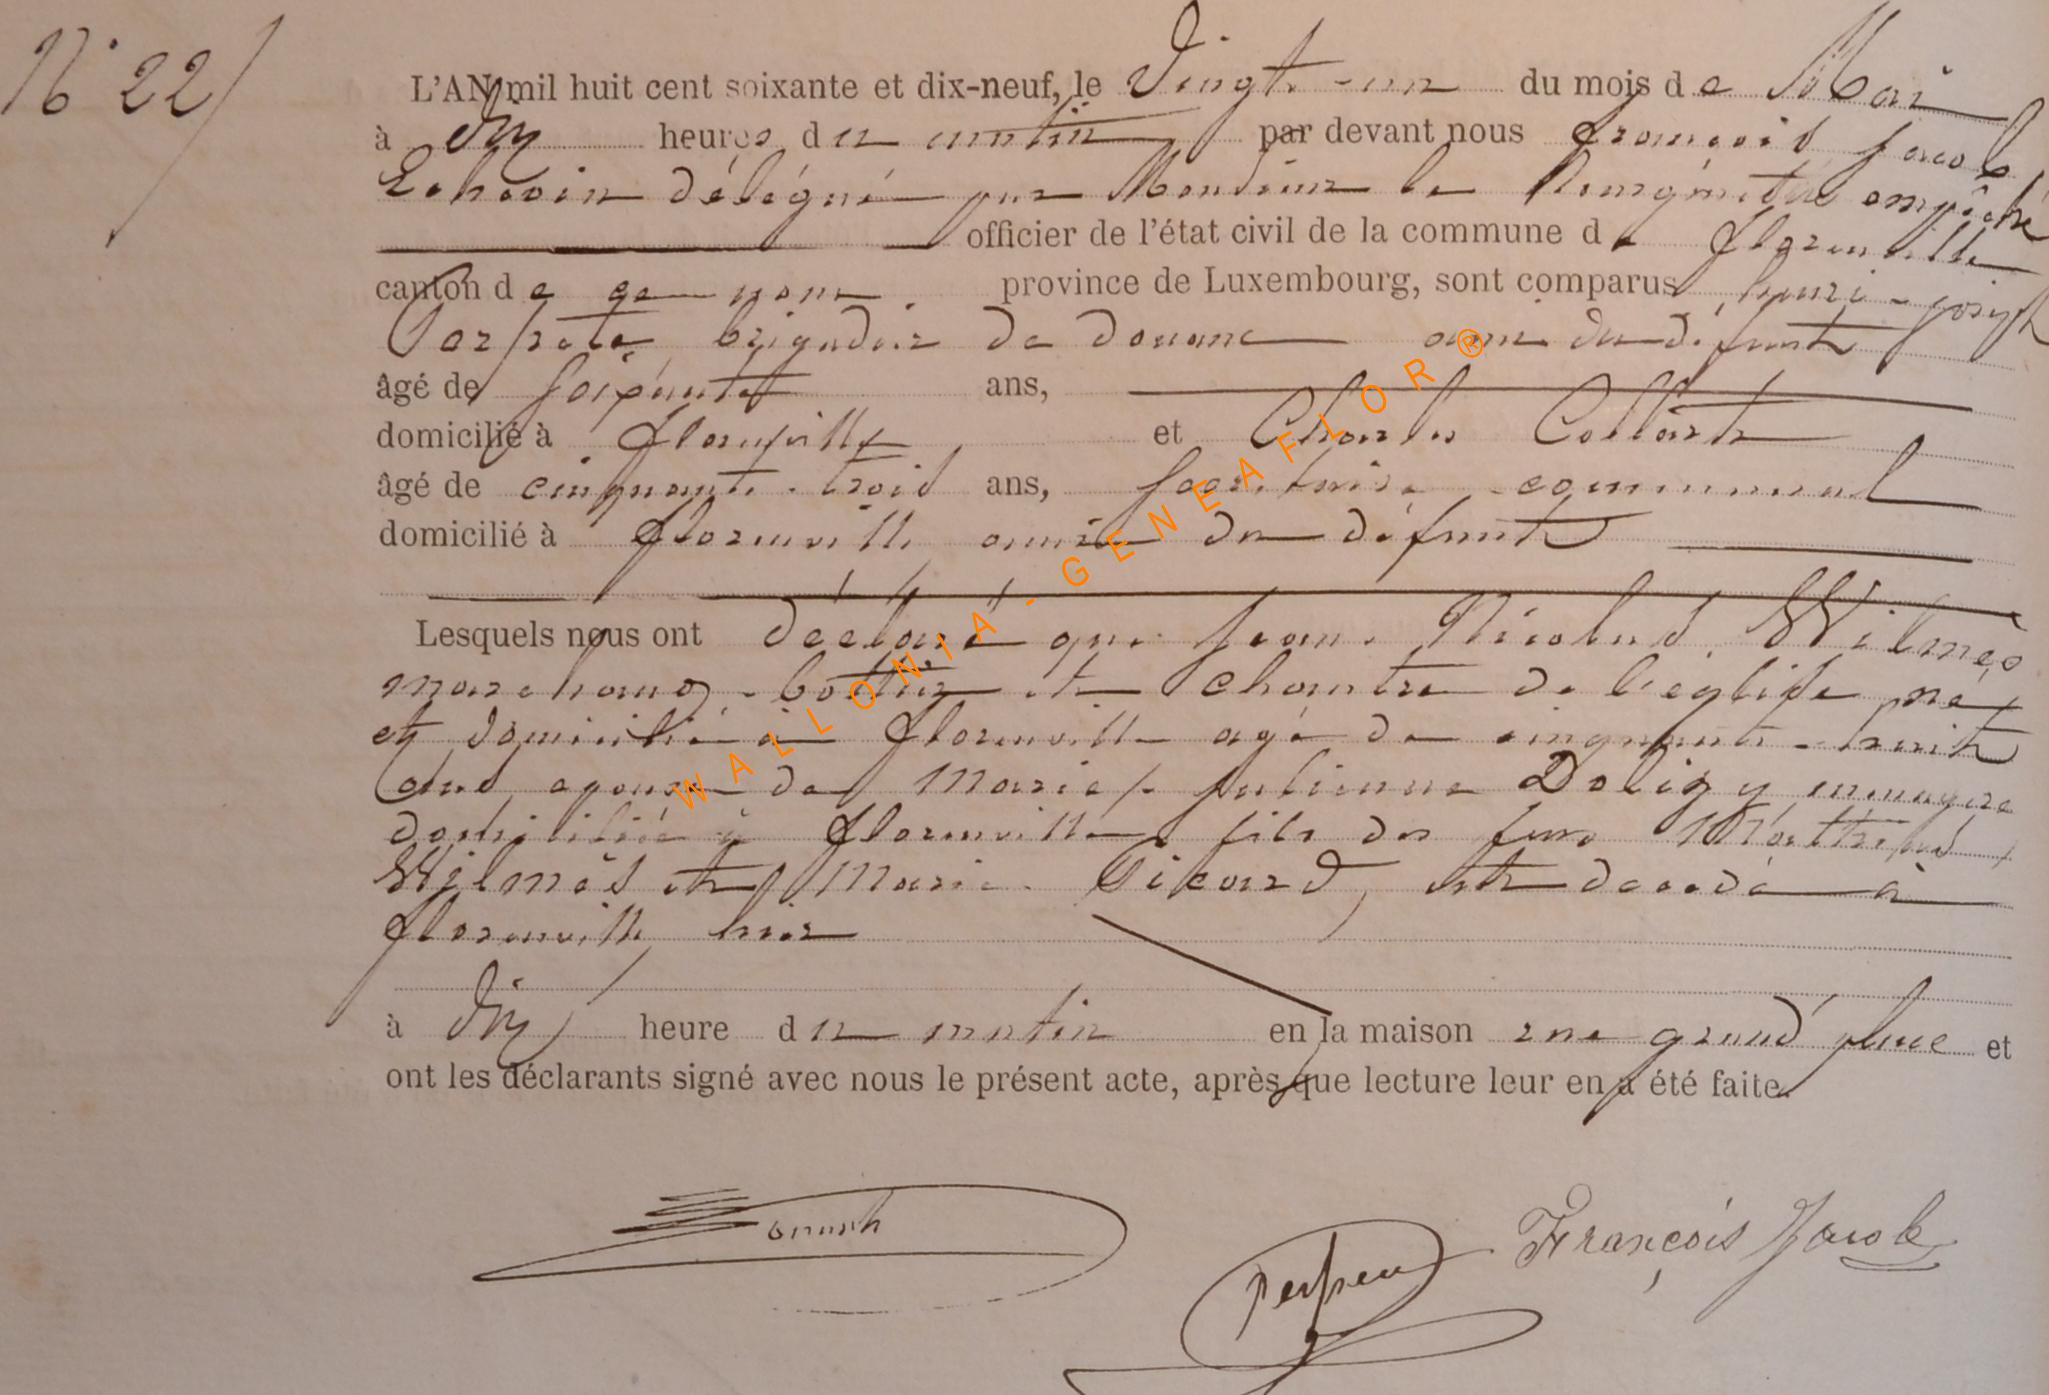 N° 22
L'AN mil huit cent soixante et dix-neuf, le Vingt-un du mois de Mai
à dix heures du matin par devant nous françois Jacob
Echevin délégué par Monsieur le Bourgmestre empêché
officier de l'état civil de la commune de florenville
canton de ce nom province de Luxembourg, sont comparus henri-joseph
brigadier de douane ami du défunt
âgé de soixante ans,
domicilié à florenville et Charles Collart
âgé de cinquante-trois ans, secrétaire communal
domicilié à florenville amis du défunt
Lesquels nous ont déclaré que jean Nicolas Wilmès
marchand-bottier et chantre de l'église né
et domicilié à florenville agé de cinquante-huit
ans, epoux de Marie julienne Doligy menagere
domiciliée à florenville fils des feux Mathias
Wilmès et Marie Picard, est decedé à
florenville hier
à dix heure du matin en la maison rue grand place et
ont les déclarants signé avec nous le présent acte, après que lecture leur en a été faite
François Jacob
WALLONIA-GENEAFLOR®